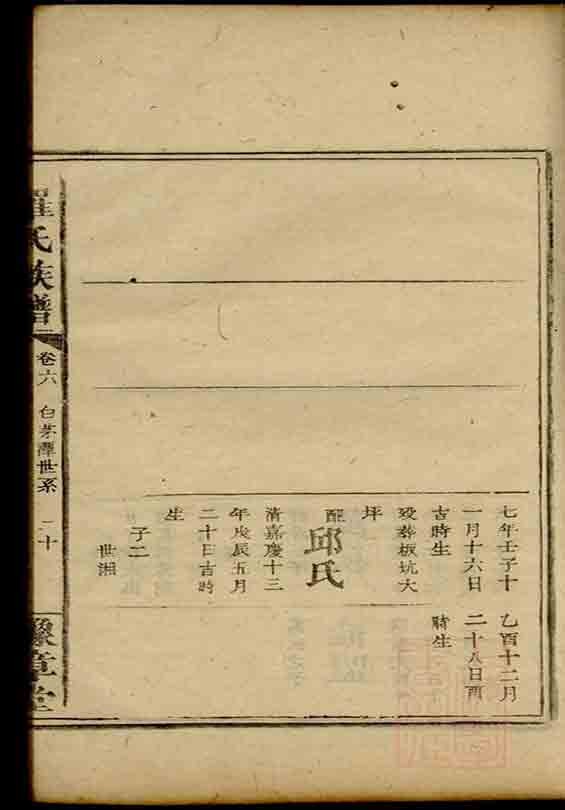 七年壬子十
一月十六日
古時生
歿葬板坑大
坪
配
邱氏
清嘉慶十三
年戊辰五月
二十日吉時
生
子二
世湘
乙酉十二月
二十八日酉
時生
羅氏族譜
卷六
白茅潭世系
二十
豫章堂